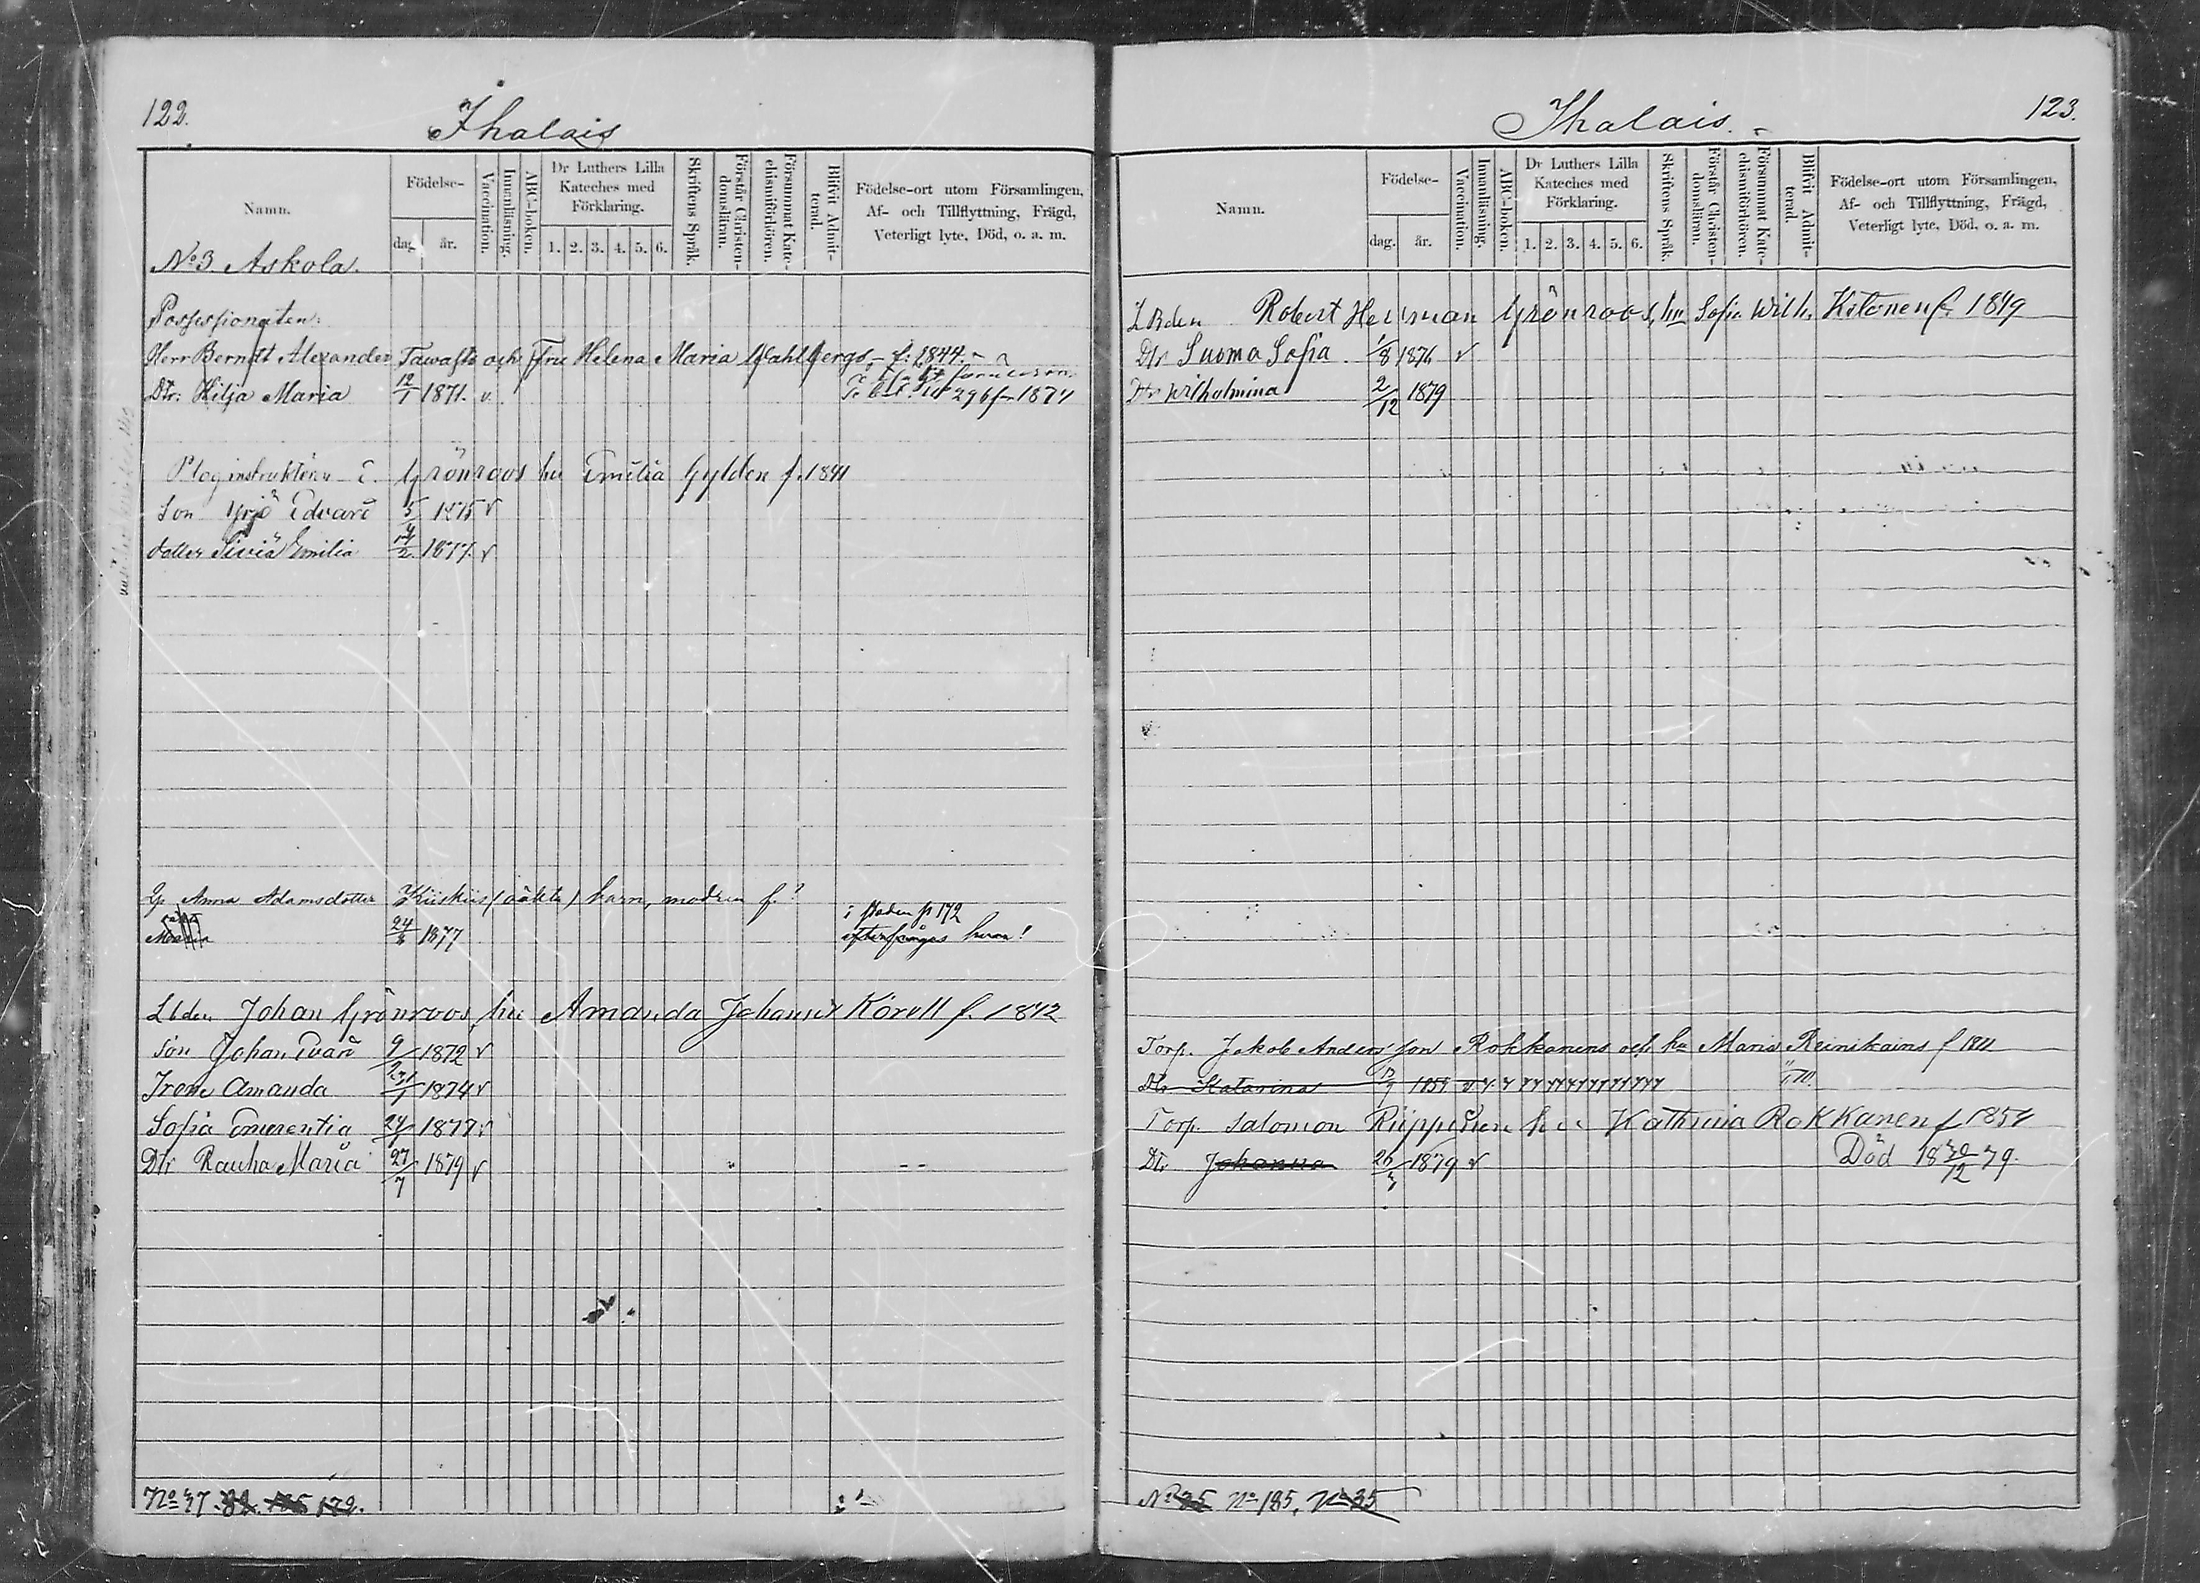 122.
Ihalais
Namn.
Födelse-
dag.
år.
Vaccination.
Innanläsning.
ABC-boken.
Dr Luthers Lilla
Kateches med
Förklaring.
1. 2. 3. 4. 5. 6.
Skriftens Språk.
Förstår Christen-
domsläran.
Försummat Kate-
chismiförhören.
Blifvit Admit-
terad.
Födelse-ort utom Församlingen,
Af- och Tillflyttning, Frägd,
Veterligt lyte, Död, o. a. m.
No 3 Askola.
Possessionaten:
Herr Berndt Alexander Tawast och Fru Helena Maria Wahlbergs f: 1844.
Dtr: Hilja Maria 12/1 1871. v. 296 1871
Ploginstruktören E. Grönroos hu Emilia Gylden f. 1841
Son Yrjö Edvard 1/5 1875 v
dotter Siviä Emilia 1877. v
Anna Adamsdotter Kiiskis (oäkta) barn, modren f. ?
i staden p 172
Maria 24/3 1877 efterfrågas hvar!
Lbden Johan Grönroos, hu Amanda Johannä Körell f. 1842
son Johan Evard 9/2 1872 v
Irene Amanda 1874 v
Sofia Emerentia 1877 v
Dtr Rauha Maria 27/7 1879 v
No 47. 82. 172.
123.
Ihalais.
Namn.
Födelse-
dag.
år.
Vaccination.
Innanläsning.
ABC-boken.
Dr Luthers Lilla
Kateches med
Förklaring.
1. 2. 3. 4. 5. 6.
Skriftens Språk.
Förstår Christen-
domsläran.
Försummat Kate-
chismiförhören.
Blifvit Admit-
terad.
Födelse-ort utom Församlingen,
Af- och Tillflyttning, Frägd,
Veterligt lyte, Död, o. a. m.
Lbden Robert Herman Grönroos, hu Sofia Wilh. Kitonen f. 1849
Dtr Suoma Sofia 1/8 1876 v
Dtr Wilhelmina 2/12 1879
Torp. Jakob Andersson Rokkanens och hu Maria Reinikains f 1811
Dtr Katarina
Torp. Salomon Riippinen hu Kathrina Rokkanen f 1854
Dtr Johanna 1879 v Död 18 30/12 79.
No 35 No 185, No 35